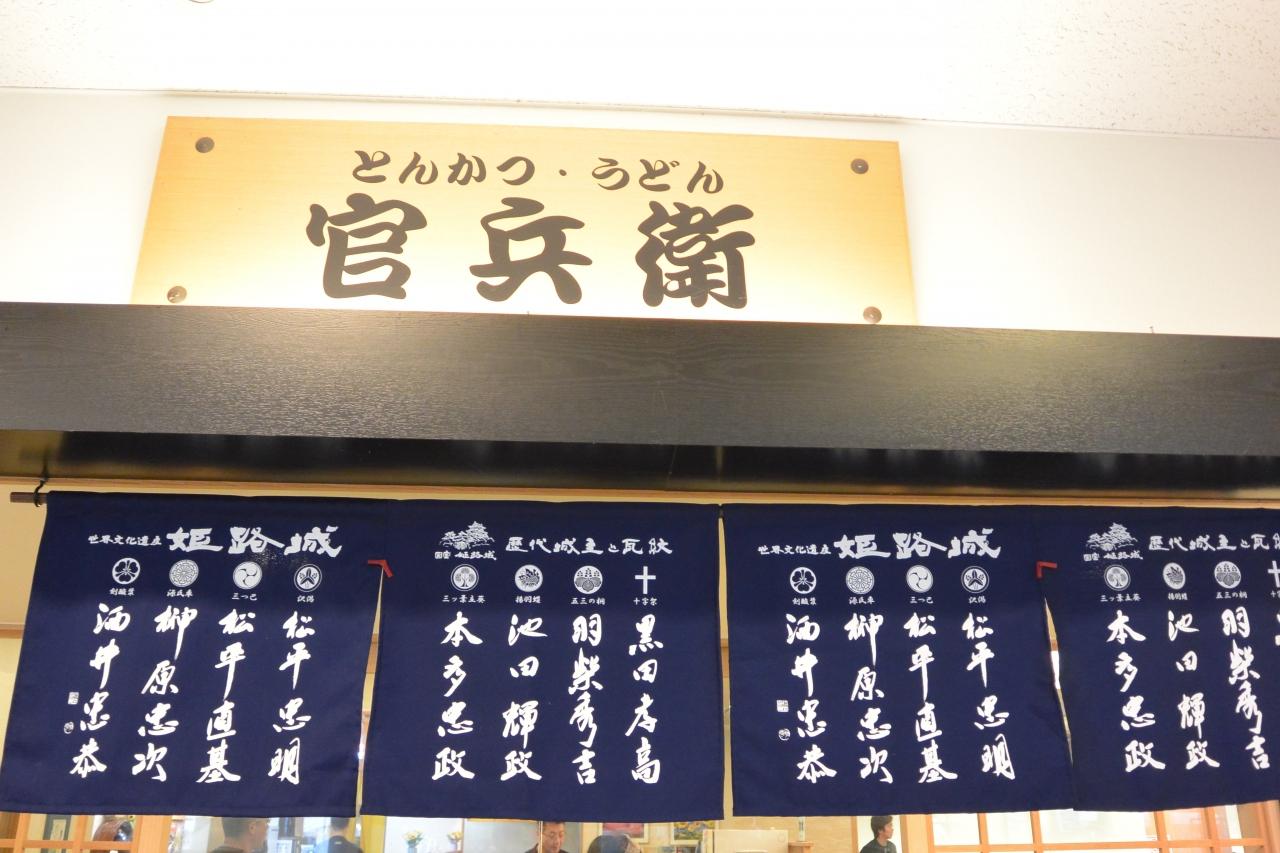 とんかつ・うどん
官兵衛
世界文化遺産 姫路城
剣酸漿 源氏車 三つ巴 沢潟
酒井忠恭
榊原忠次
松平直基
松平忠明
国宝 姫路城 歴代城主と瓦紋
三ッ葉立葵 揚羽蝶 五三の桐 十字架
本多忠政
池田輝政
羽柴秀吉
黒田孝高
世界文化遺産 姫路城
剣酸漿 源氏車 三つ巴 沢潟
酒井忠恭
榊原忠次
松平直基
松平忠明
国宝 姫路城 歴代城主と瓦紋
三ッ葉立葵 揚羽蝶 五三の桐
本多忠政
池田輝政
羽柴秀吉